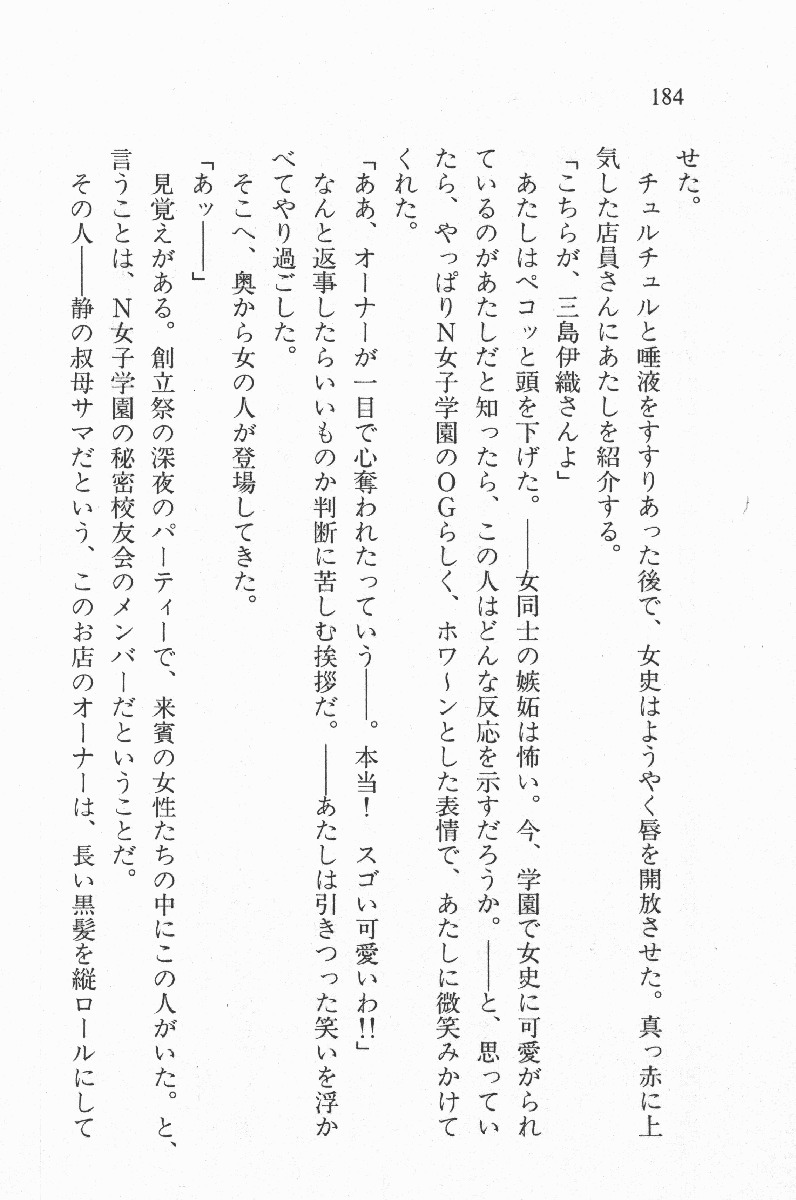 184
せた。
　チュルチュルと唾液をすすりあった後で、女史はようやく唇を開放させた。真っ赤に上
気した店員さんにあたしを紹介する。
「こちらが、三島伊織さんよ」
　あたしはペコッと頭を下げた。――女同士の嫉妬は怖い。今、学園で女史に可愛がられ
ているのがあたしだと知ったら、この人はどんな反応を示すだろうか。――と、思ってい
たら、やっぱりN女子学園のOGらしく、ホワ～ンとした表情で、あたしに微笑みかけて
くれた。
「ああ、オーナーが一目で心奪われたっていう――。本当！　スゴい可愛いわ!!」
　なんと返事したらいいものか判断に苦しむ挨拶だ。――あたしは引きつった笑いを浮か
べてやり過ごした。
　そこへ、奥から女の人が登場してきた。
「あッ――」
　見覚えがある。創立祭の深夜のパーティーで、来賓の女性たちの中にこの人がいた。と、
言うことは、N女子学園の秘密校友会のメンバーだということだ。
　その人――静の叔母サマだという、このお店のオーナーは、長い黒髪を縦ロールにして